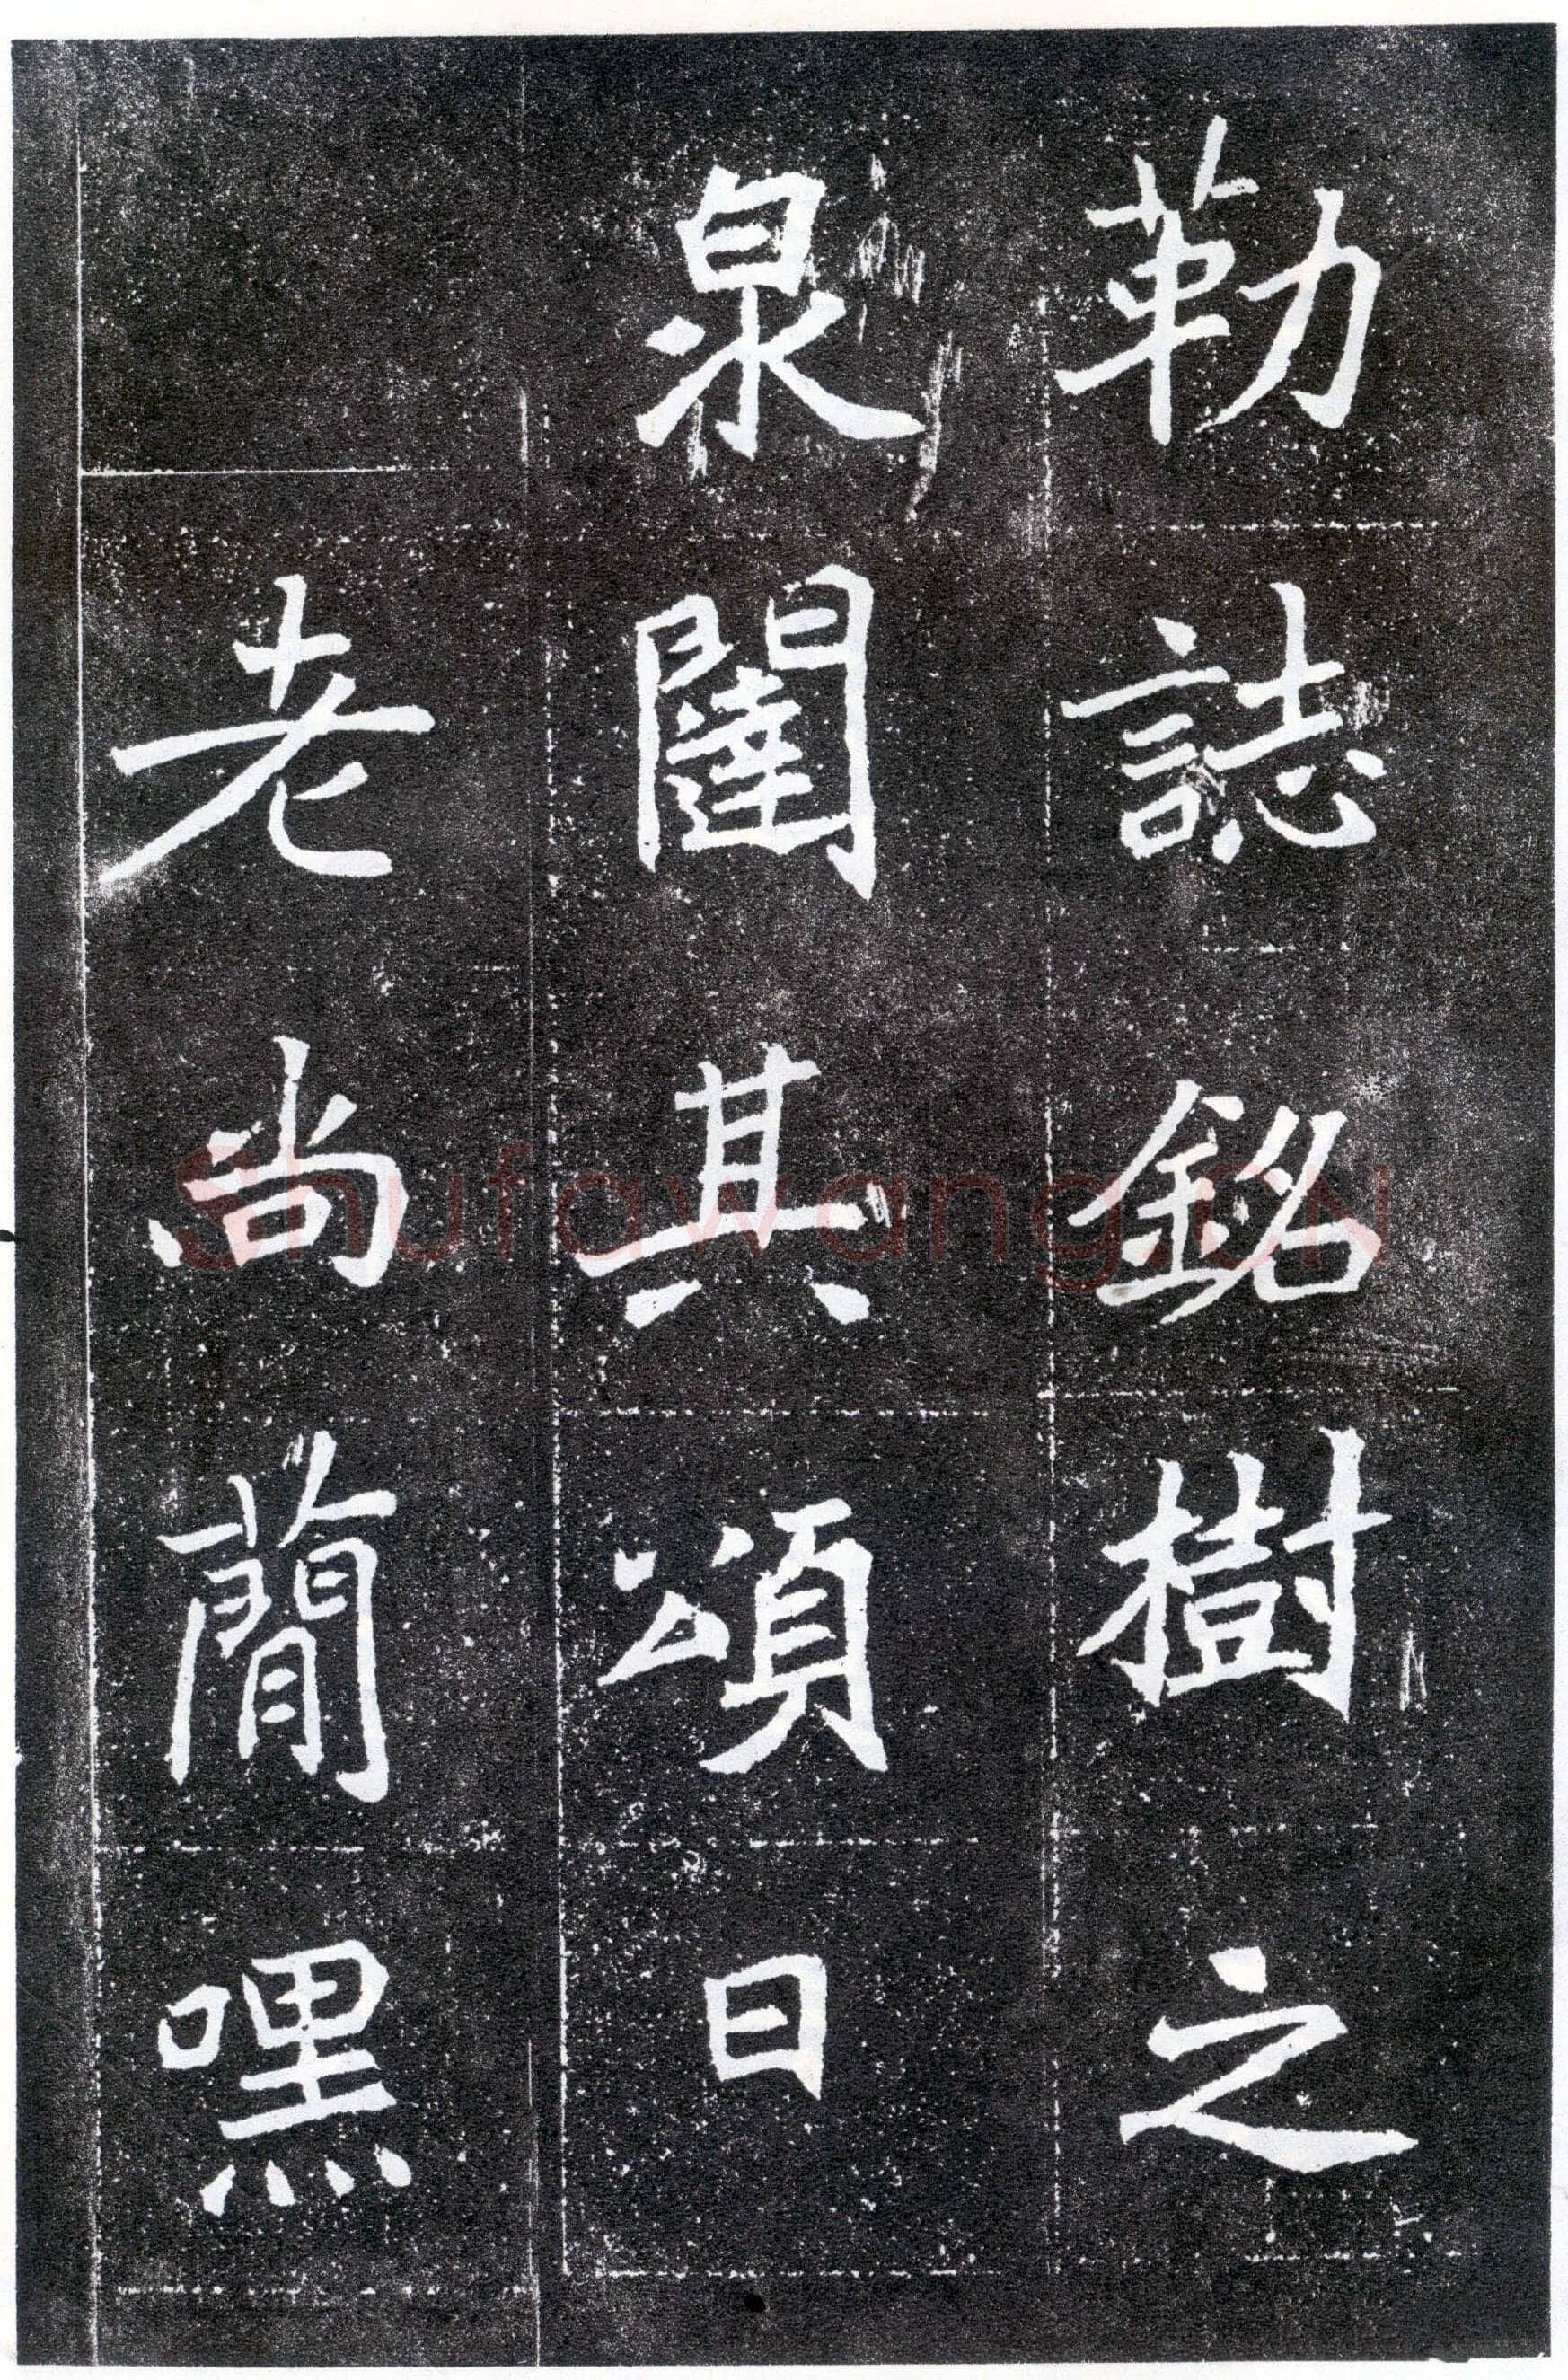 勒誌銘樹之
泉闥其頌曰
老尚蕳嘿
Shufawang.CN